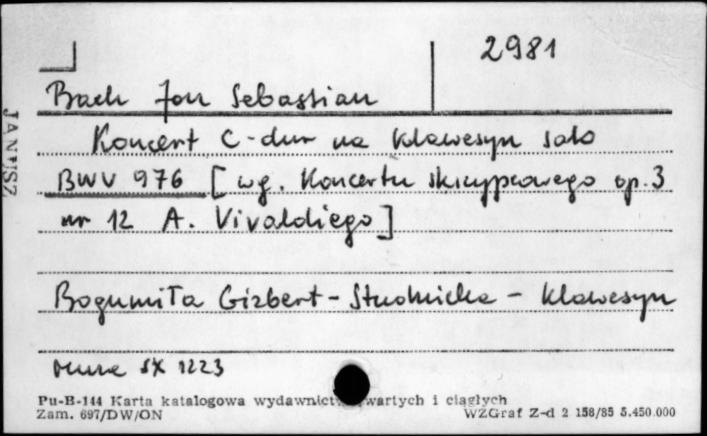 2981
Bach Jan Sebastian
Koncert C-dur na klawesyn solo
BWV 976 [wg. Koncertu skrzypcowego op. 3
nr 12 A. Vivaldiego]
Bogumiła Gizbert-Studnicka - klawesyn
Muza SX 1223
Pu-B-144 Karta katalogowa wydawnict wartych i ciągłych
Zam. 697/DW/ON WZGraf Z-d 2 158/85 5.450.000
JANUSZ